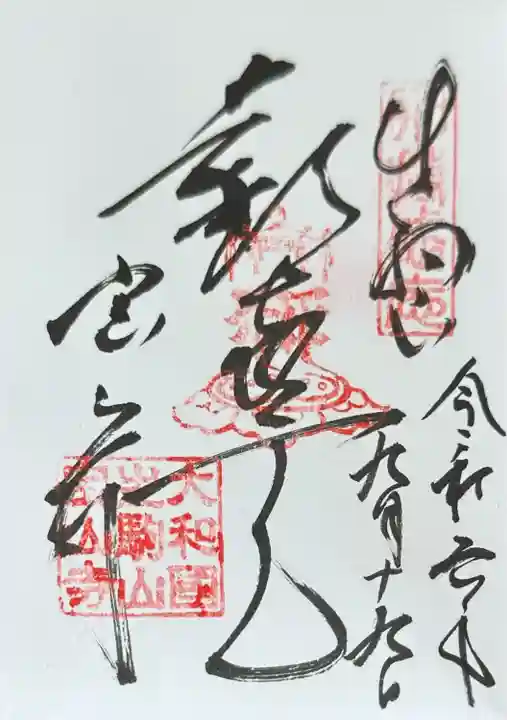 生駒山
令和六年
九月十九日
歓喜天
宝山寺
大和國
生駒山
寳山寺